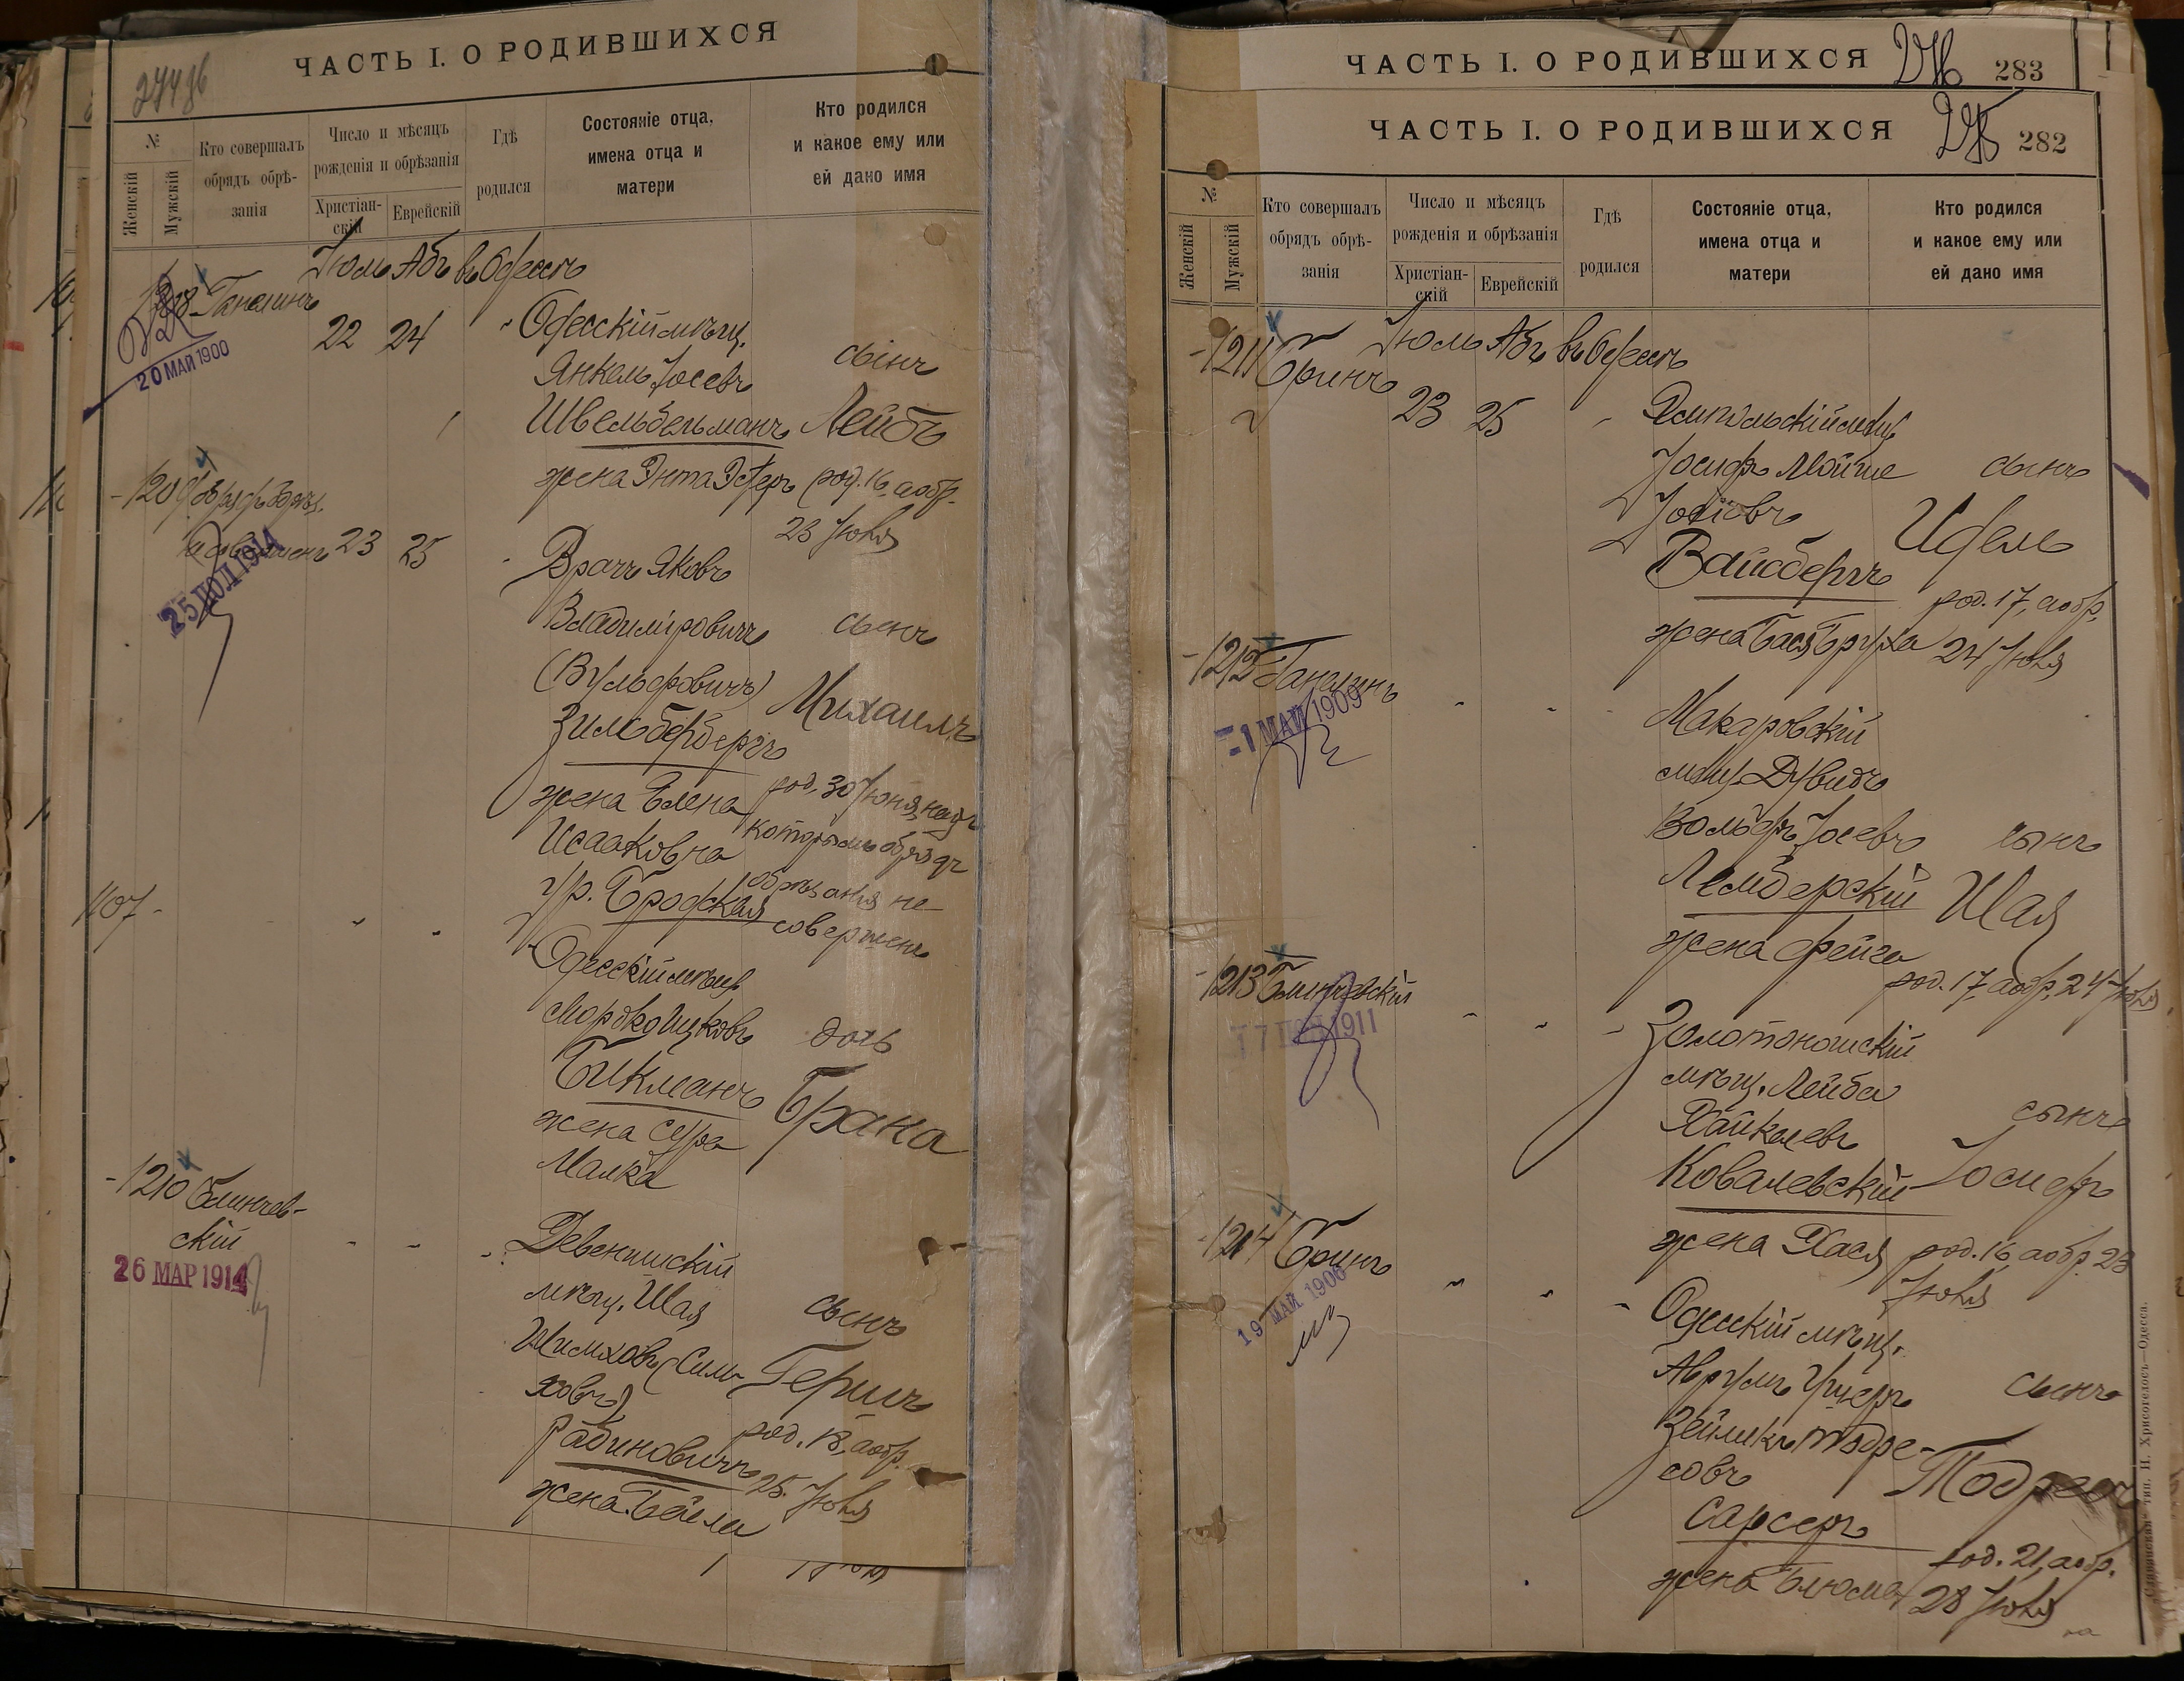 ЧАСТЬ I. О РОДИВШИХСЯ
№
Женскій
Мужскій
Кто совершалъ
обрядъ обрѣ-
занія
Число и мѣсяцъ
рожденія и обрѣзанія
Христіан-
скій
Еврейскій
Гдѣ
родился
Состояніе отца,
имена отца и
матери
Кто родился
и какое ему или
ей дано имя
Іюль Абъ въ Одессѣ
1208 Ганелинъ
20 МАЙ 1900
22 24
Одесскій мѣщ.
Янкель Іосевъ
Швельбельманъ
жена Энта Эстеръ
сынъ
Лейбъ
род. 16, а обр.
23 Іюля
1209
совершенъ 23 25
25 ПОЛ 1914
Врачъ Яковъ
Владиміровичъ
(Вульфовичъ)
Зильбербергъ
жена Елена
Исааковна
ур. Бродская
сынъ
Михаилъ
род. 30 Іюня, надъ
которымъ обрядъ
обрѣзанія не
совершенъ
1107
Одесскій мѣщ.
Мордко Ицковъ
Бикманъ
жена Сура
Малка
дочь
Брана
1210 Блинчев-
скій
26 МАР 1914
Девенишскій
мѣщ. Шая
Шимховъ (Сим-
ховъ)
Рабиновичъ
жена Бейла
сынъ
Гершъ
род. 18, а обр.
25 Іюля
ЧАСТЬ I. О РОДИВШИХСЯ
283
ЧАСТЬ I. О РОДИВШИХСЯ
282
№
Женскій
Мужскій
Кто совершалъ
обрядъ обрѣ-
занія
Число и мѣсяцъ
рожденія и обрѣзанія
Христіан-
скій
Еврейскій
Гдѣ
родился
Состояніе отца,
имена отца и
матери
Кто родился
и какое ему или
ей дано имя
Іюль Абъ въ Одессѣ
1211 Бринъ
23 25
Ямпольскій мѣщ.
Іосифъ Мойше
Вайсбергъ
жена Бася Бруха
сынъ
Идель
род. 17, а обр.
24 Іюля
1212 Ганелинъ
1 МАЙ 1909
Макаровскій
мѣщ. Дувидъ
Вольфъ Іосевъ
Лемберскій
жена Фейга
сынъ
Шая
род. 17, а обр. 24 Іюля
1213 Блинчевскій
1911
Золотоношскій
мѣщ. Лейба
Хайкелевъ
Ковалевскій
жена Хася
сынъ
Іосифъ
род. 16, а обр. 23
Іюля
1214 Бринъ
19 МАЙ 1906
Одесскій мѣщ.
Аврумъ Ушеръ
Зейликъ Тодре-
совъ
Сарсеръ
жена Блюма
сынъ
Тодресъ
род. 21, а обр.
28 Іюля
тип. И. Хрисогелосъ—Одесса.